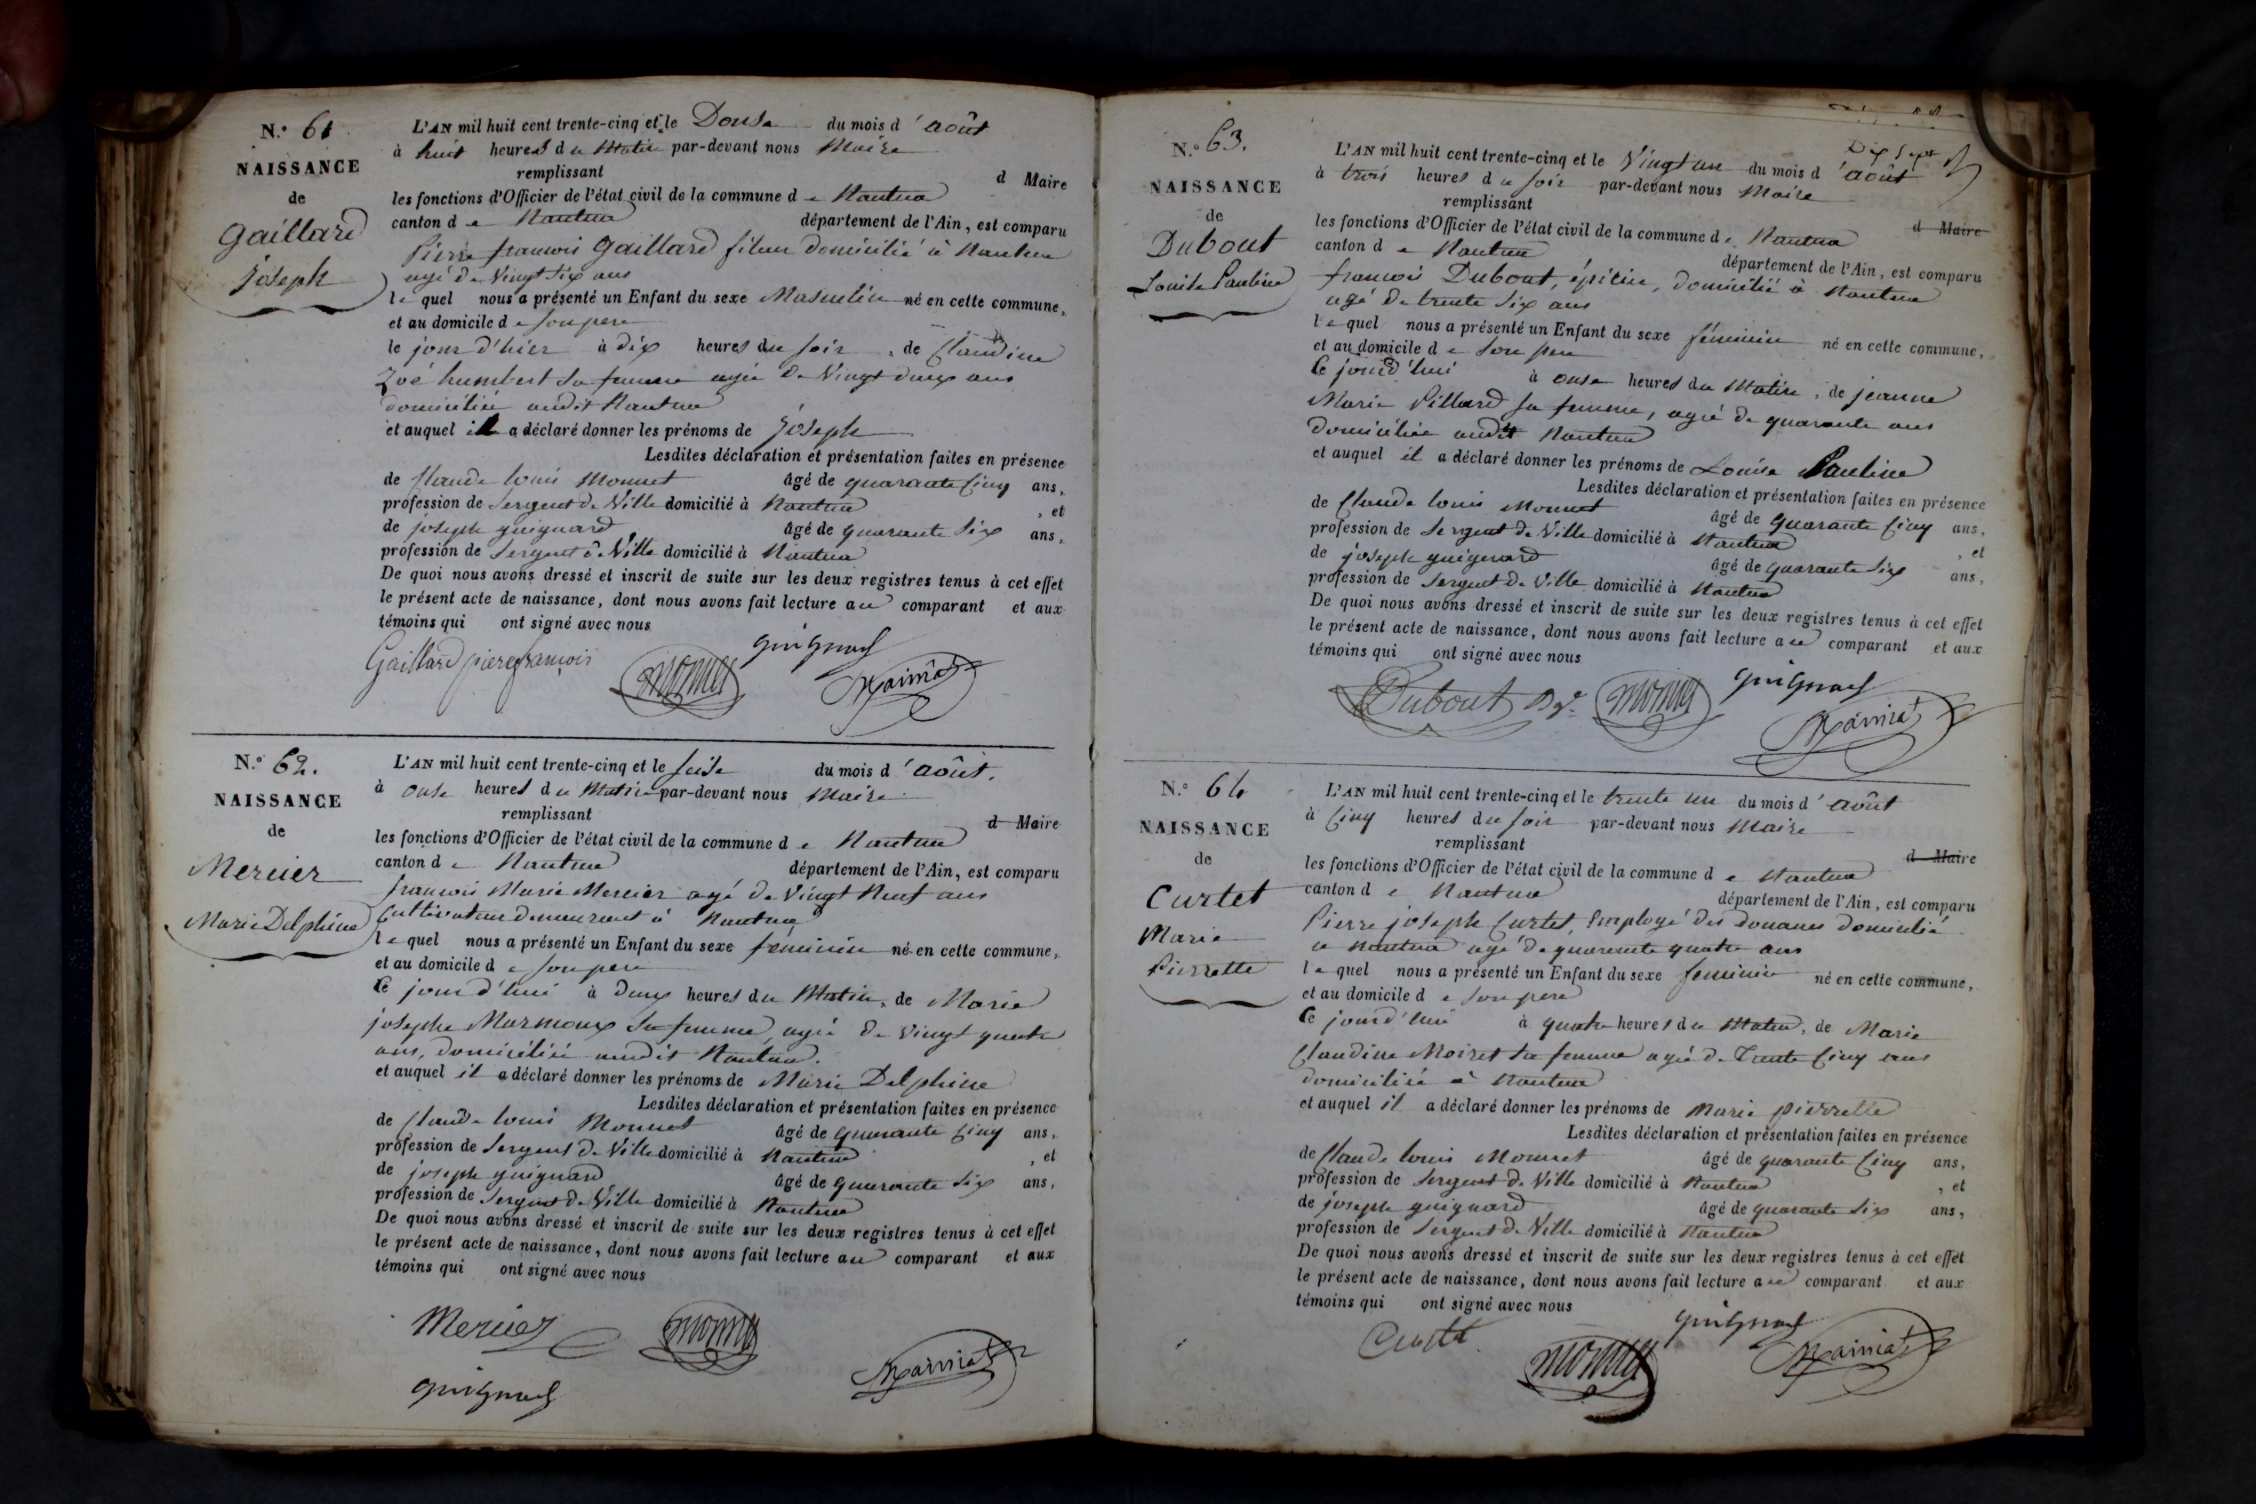 N.° 61
NAISSANCE
de
Gaillard
joseph
L'AN mil huit cent trente-cinq et le Douse du mois d'août
à huit heures du Matin par-devant nous Maire
remplissant d Maire
les fonctions d'Officier de l'état civil de la commune de Nantua
canton de Nantua département de l'Ain, est comparu
Pierre francois Gaillard fileur domicilié à Nantua
agé de Vingt Six ans
lequel nous a présenté un Enfant du sexe Masculin né en cette commune,
et au domicile de son pere
le jour d'hier à dix heures du soir, de Claudine
Zoé humbert sa femme agée de Vingt deux ans
domiciliée audit Nantua
et auquel il a déclaré donner les prénoms de Joseph
Lesdites déclaration et présentation faites en présence
de Claude louis Monnet âgé de quarante Cinq ans,
profession de Sergent de Ville domicilié à Nantua, et
de joseph guignard âgé de quarante Six ans,
profession de Sergent de Ville domicilié à Nantua
De quoi nous avons dressé et inscrit de suite sur les deux registres tenus à cet effet
le présent acte de naissance, dont nous avons fait lecture au comparant et aux
témoins qui ont signé avec nous
Gaillard pierefrancois monnet guignard
N.° 62.
NAISSANCE
de
Mercier
Marie Delphine
L'AN mil huit cent trente-cinq et le seise du mois d'août.
à onse heures du Matin par-devant nous Maire
remplissant d Maire
les fonctions d'Officier de l'état civil de la commune de Nantua
canton de Nantua département de l'Ain, est comparu
francois Marie Mercier agé de Vingt Neuf ans
Cultivateur demeurant à Nantua
lequel nous a présenté un Enfant du sexe féminin né en cette commune,
et au domicile de son pere
Ce jourd'hui à deux heures du Matin, de Marie
josephe Marmoux sa femme, agée de vingt quatre
ans, domiciliée audit Nantua.
et auquel il a déclaré donner les prénoms de Marie Delphine
Lesdites déclaration et présentation faites en présence
de Claude louis Monnet âgé de quarante Cinq ans,
profession de Sergent de Ville domicilié à Nantua, et
de joseph guignard âgé de quarante Six ans,
profession de Sergent de Ville domicilié à Nantua
De quoi nous avons dressé et inscrit de suite sur les deux registres tenus à cet effet
le présent acte de naissance, dont nous avons fait lecture au comparant et aux
témoins qui ont signé avec nous
Mercier monnet
guignard
N.° 63.
NAISSANCE
de
Dubout
Louise Pauline
Dix Sept
L'AN mil huit cent trente-cinq et le Vingt un du mois d'août
à trois heures du soir par-devant nous Maire
remplissant d Maire
les fonctions d'Officier de l'état civil de la commune de Nantua
canton de Nantua département de l'Ain, est comparu
francois Dubout, épicier, domicilié à Nantua
agé de trente Six ans
lequel nous a présenté un Enfant du sexe féminin né en cette commune,
et au domicile de son pere
Ce jourd'hui à onse heures du Matin, de jeanne
Marie Pillard sa femme, agée de quarante ans
domiciliée audit Nantua
et auquel il a déclaré donner les prénoms de Louise Pauline
Lesdites déclaration et présentation faites en présence
de Claude louis Monnet âgé de quarante Cinq ans,
profession de Sergent de Ville domicilié à Nantua, et
de joseph guignard âgé de quarante Six ans,
profession de Sergent de Ville domicilié à Nantua
De quoi nous avons dressé et inscrit de suite sur les deux registres tenus à cet effet
le présent acte de naissance, dont nous avons fait lecture au comparant et aux
témoins qui ont signé avec nous
Dubout monnet guignard
N.° 64
NAISSANCE
de
Curtet
Marie
Pierrette
L'AN mil huit cent trente-cinq et le trente un du mois d'août
à Cinq heures du soir par-devant nous Maire
remplissant d Maire
les fonctions d'Officier de l'état civil de la commune de Nantua
canton de Nantua département de l'Ain, est comparu
Pierre joseph Curtet, Employé des Douanes domicilié
a Nantua agé de quarente quatre ans
lequel nous a présenté un Enfant du sexe feminin né en cette commune,
et au domicile de son pere
Ce jourd'hui à quatre heures du Matin, de Marie
Claudine Moiret sa femme agée de Trente Cinq ans
domiciliée à Nantua
et auquel il a déclaré donner les prénoms de Marie pierrette
Lesdites déclaration et présentation faites en présence
de Claude louis Monnet âgé de quarante Cinq ans,
profession de Sergent de Ville domicilié à Nantua, et
de joseph guignard âgé de quarante Six ans,
profession de Sergent de Ville domicilié à Nantua
De quoi nous avons dressé et inscrit de suite sur les deux registres tenus à cet effet
le présent acte de naissance, dont nous avons fait lecture au comparant et aux
témoins qui ont signé avec nous
Curtet monnet guignard